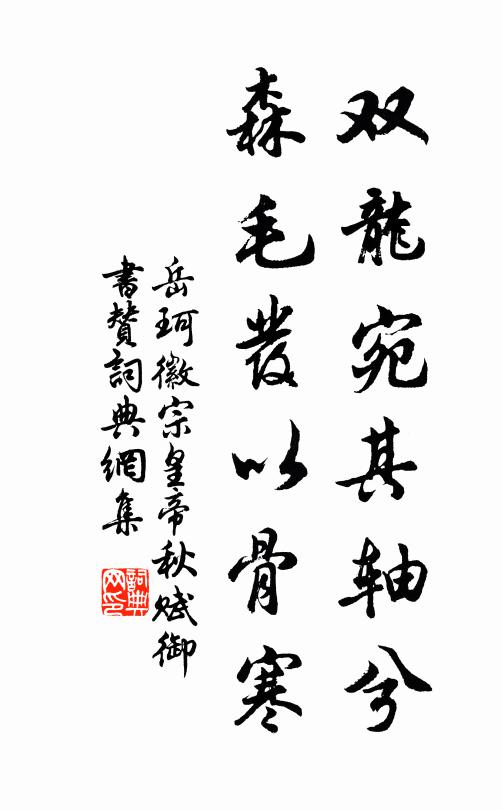 双龍宛其轴兮
森毛發以骨寒
岳珂徽宗皇帝秋赋御
書贊詞典網集
詞典网印